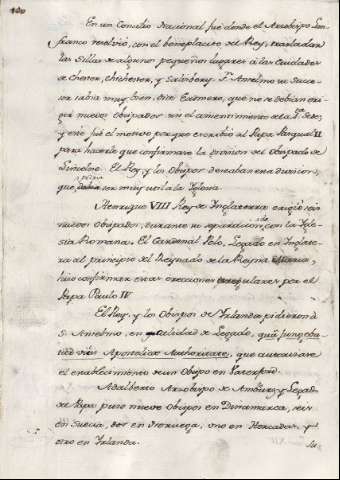 En un Concilio Nacional fué donde el Arzobispo Lan-
franco resolvió, con el beneplacito del Rey, trasladar
las Sillas de algunos pequeños lugares á las Ciudades
de Chester, Chichester, y Salisbery. Sn. Anselmo su Suce-
sor sabia muy bien, dice Eadmero, que no se debian eri-
gir nuevos Obispados sin el consentimiento de la Sta. Sede,
y este fué el motivo porque escribió al Papa Pasqual II
para hacerle que confirmase la division del Obispado de
Lincolne. El Rey, y los Obispos deseaban esta division,
que podia ser muy util a la Iglesia.
Henrique VIII Rey de Inglaterra erigió seis
nuevos Obispados, durante su separacion de con la Igle-
sia Romana. El Cardenal Polo, Legado en Inglater-
ra al principio del Reynado de la Reyna Maria,
hizo confirmar estas erecciones irregulares por el
Papa Paulo IV.
El Rey, y los Obispos de Irlanda pidieron á
Sn. Anselmo, en qualidad de Legado, quâ fungeba-
tur vicis Apostolicæ Authoritate, que autorizase
el establecimiento de un Obispo en Vaterford.
Adalberto Arzobispo de Amburg y Legado
del Papa puso nueve Obispos en Dinamarca, seis
en Suecia, dos en Noruega, uno en Horcadas, y
otro en Irlanda.